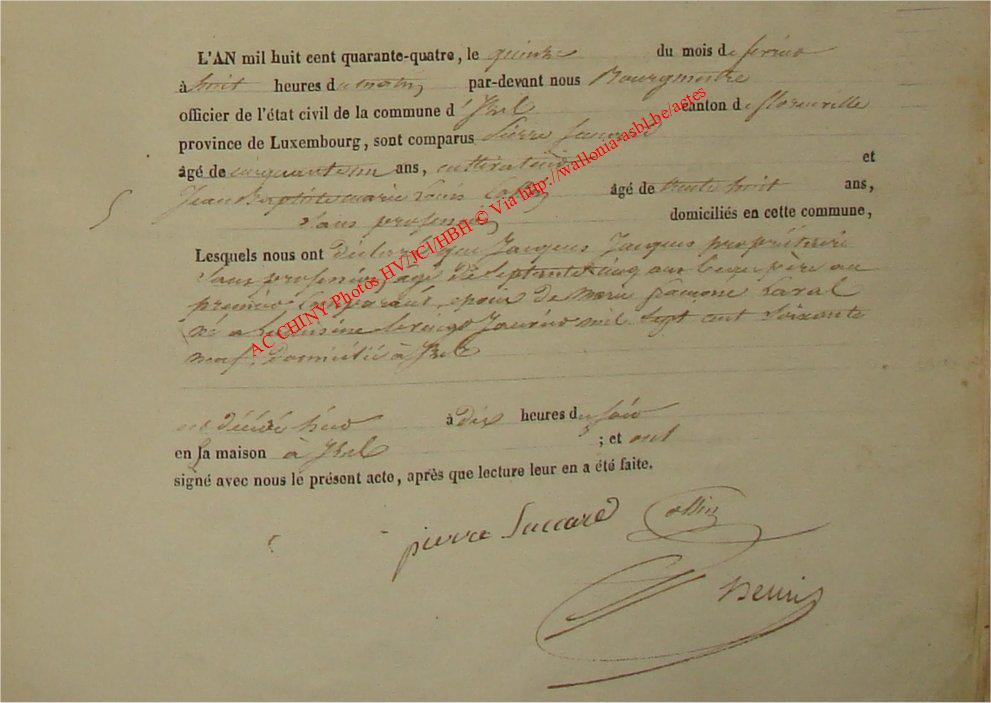 L'AN mil huit cent quarante-quatre, le quinze du mois de fevrier
à huit heures du matin par-devant nous Bourgmestre
officier de l'état civil de la commune d' Izel canton de florenville
province de Luxembourg, sont comparus Pierre
âgé de ans, cultivateur et
Jean Baptiste marie Louis Collin âgé de trente huit ans,
Sans profession domiciliés en cette commune,
Lesquels nous ont déclaré que Jacques propriétaire
Sans profession agé de Septante cinq ans beau père au
premier Comparant, epoux de marie Laval
né a le vingt mil Sept cent Soixante
neuf, Domicilié à Izel
est décédé hier à dix heures du soir
en sa maison à Izel ; et ont
signé avec nous le présent acte, après que lecture leur en a été faite.
pierre Saccard Collin
henri
AC CHINY Photos HV/JCI/HBH © Via http://wallonia-asbl.be/actes